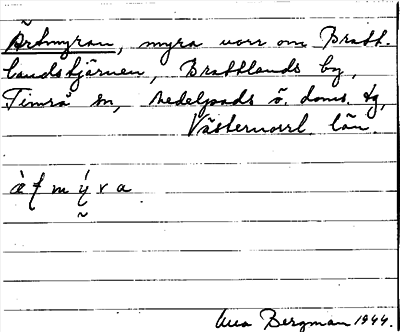 Ärtmyran, myra norr om Bratt-
landstjärnen, Brattlands by,
Timrå sn, Medelpads ö. doms. tg,
Västernorrl. län
Bergman 1944.